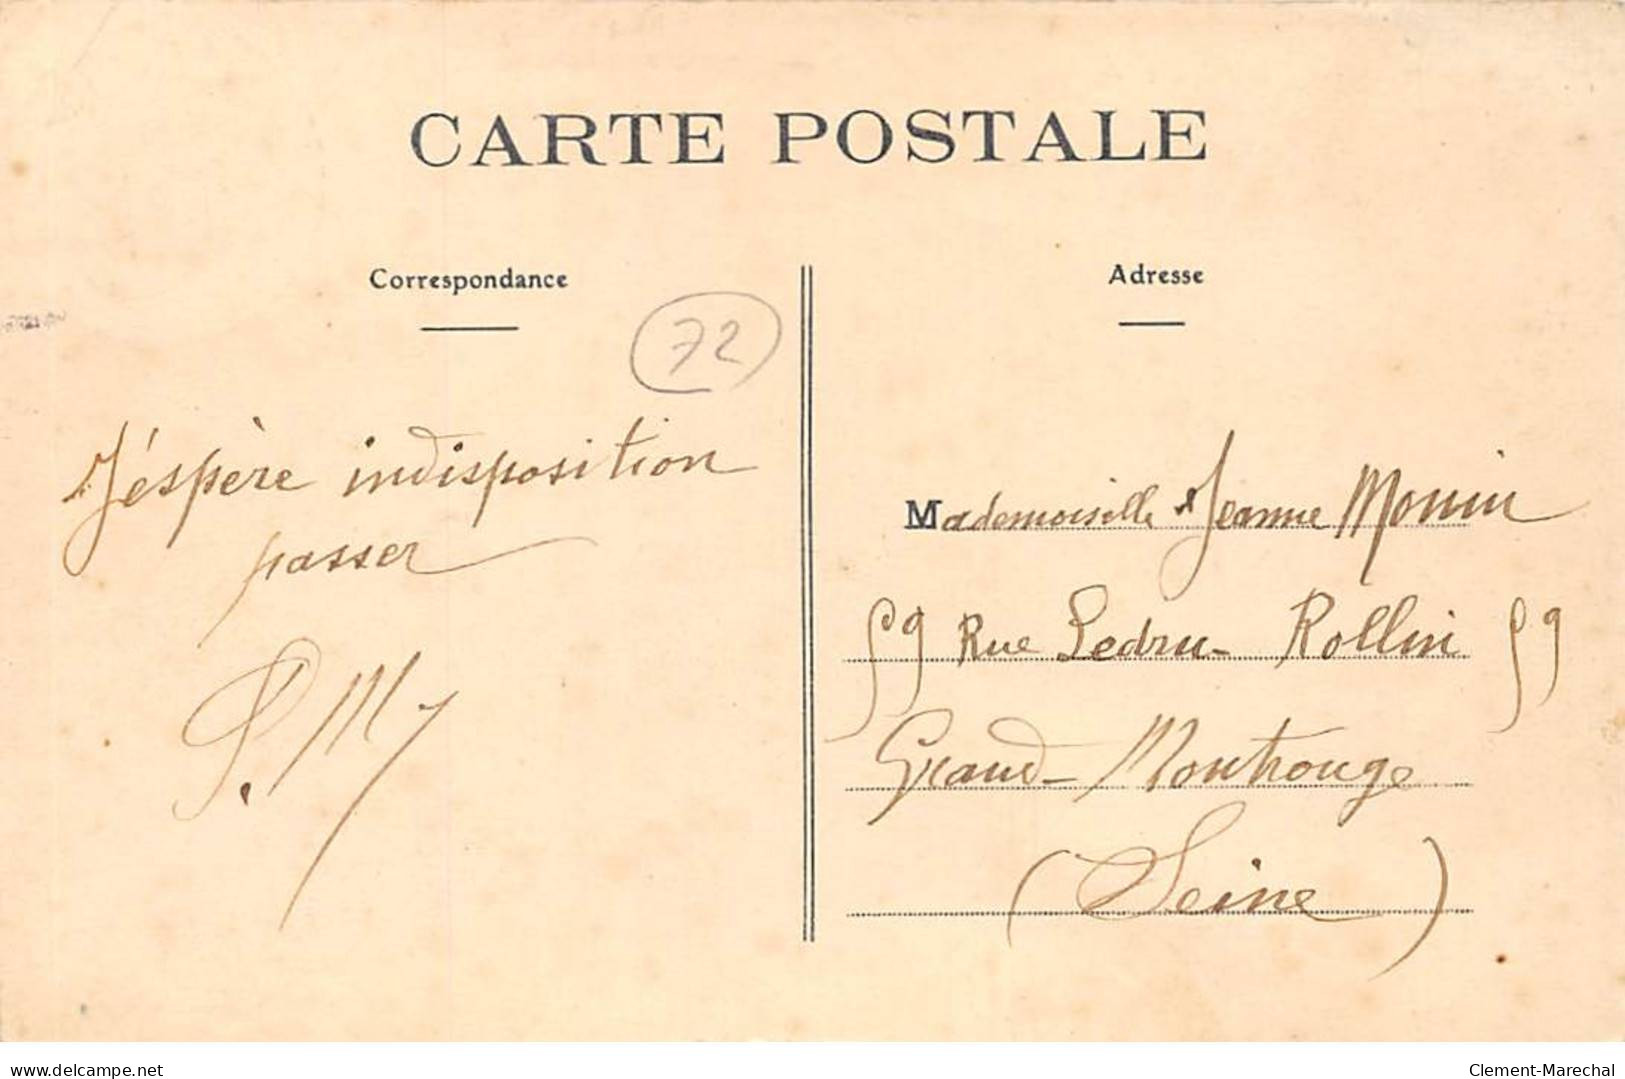 CARTE POSTALE
Correspondance
Adresse
72
J'éspère indisposition
passer
P. M
Mademoiselle Jeanne Monin
59 Rue Ledru-Rollin 59
Grand-Montrouge
(Seine)
www.delcampe.net
Clement-Marechal